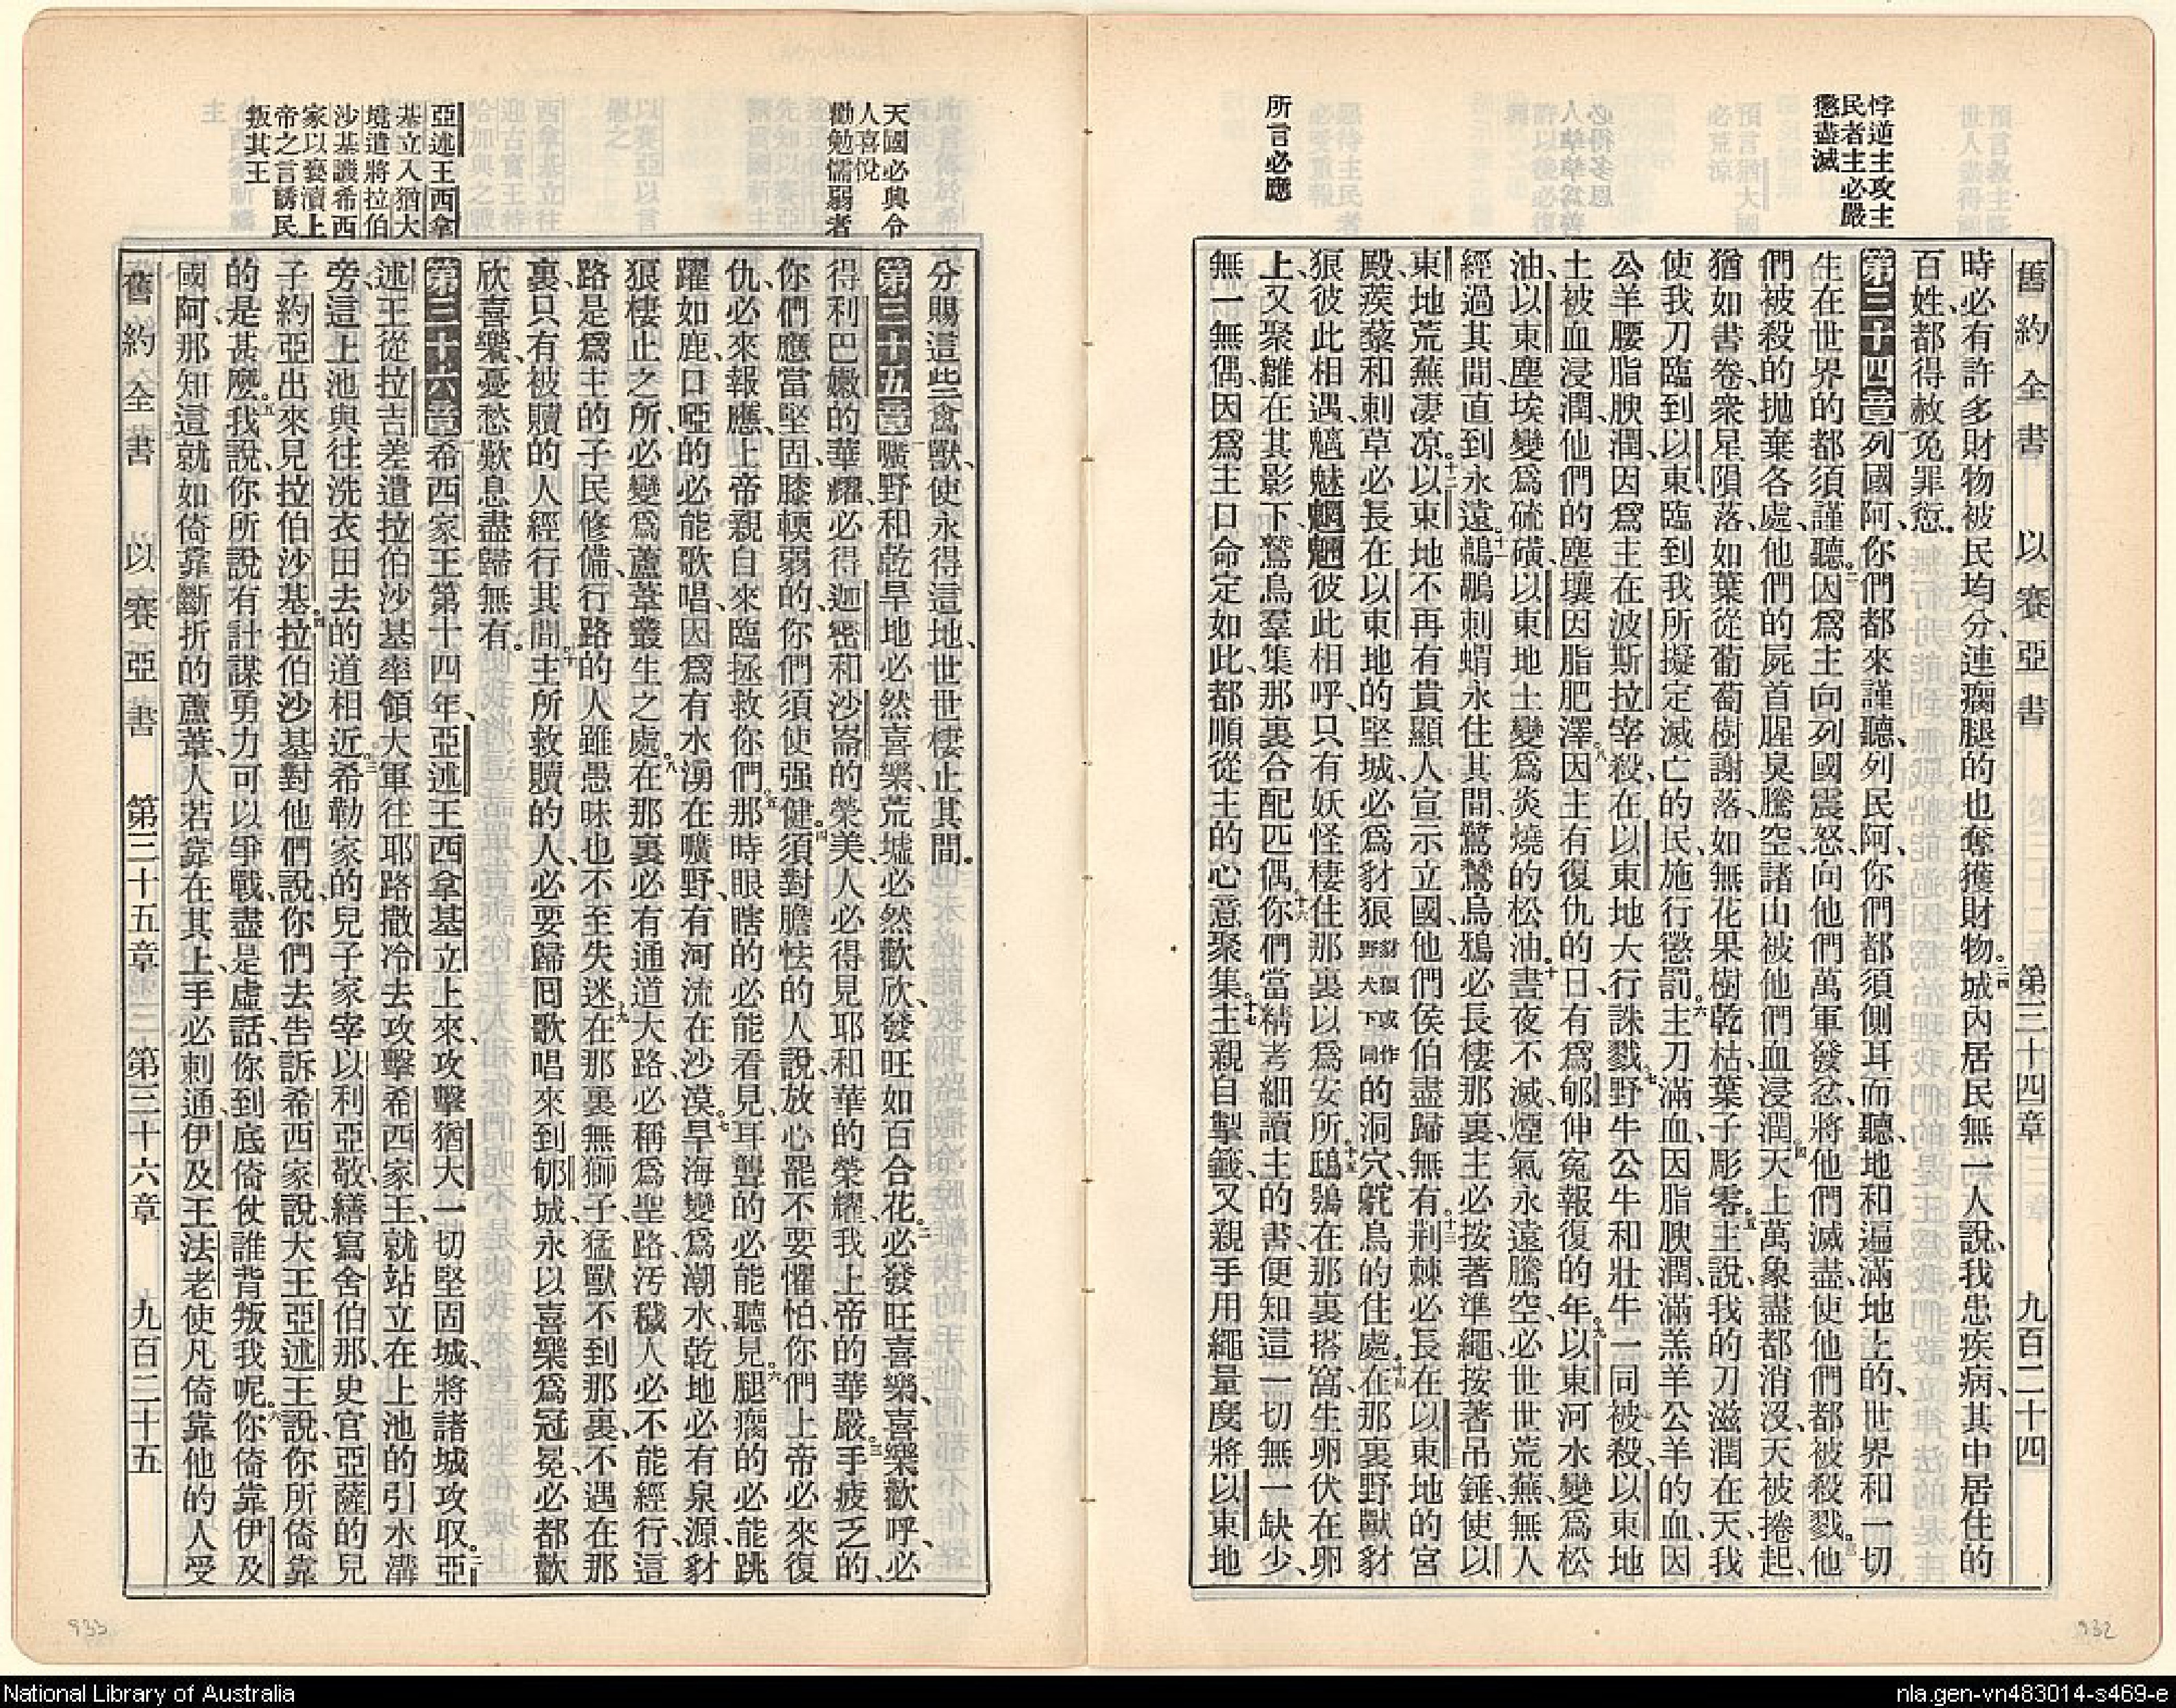 悖逆主攻主
民者主必嚴
懲盡滅
所言必應
舊約全書 以賽亞書 第三十四章 九百二十四
時必有許多財物被民均分、連瘸腿的也奪獲財物。二四城內居民無一人說、我患疾病、其中居住的
百姓、都得赦免罪愆。
第三十四章 一列國阿、你們都來謹聽、列民阿、你們都須側耳而聽、地和遍滿地上的、世界和一切
生在世界的都須謹聽。二因爲主向列國震怒、向他們萬軍發忿、將他們滅盡、使他們都被殺戮。三他
們被殺的拋棄各處、他們的屍首腥臭騰空、諸山被他們血浸潤。四天上萬象盡都消沒、天被捲起、
猶如書卷、衆星隕落、如葉從葡萄樹謝落、如無花果樹乾枯、葉子彫零。五主說、我的刀滋潤在天、我
使我刀臨到以東、臨到我所擬定滅亡的民、施行懲罰。六主刀滿血、因脂腴潤、滿羔羊公羊的血、因
公羊腰脂腴潤、因爲主在波斯拉宰殺、在以東地大行誅戮。七野牛公牛和壯牛一同被殺、以東地
土被血浸潤、他們的塵壤因脂肥澤。八因主有復仇的日、有爲郇伸寃報復的年。九以東河水變爲松
油、以東塵埃變爲硫磺、以東地土變爲炎燒的松油。十晝夜不滅、煙氣永遠騰空、必世世荒蕪、無人
經過其間、直到永遠。十一鵜鶘刺蝟永住其間、鷺鶿烏鴉必長棲那裏、主必按著準繩、按著吊錘、使以
東地荒蕪凄凉。十二以東地不再有貴顯人宣示立國、他們侯伯盡歸無有。十三荆棘必長在以東地的宮
殿、蒺藜和刺草必長在以東地的堅城、必爲豺狼豺狼或作野犬下同的洞穴、鴕鳥的住處。十四在那裏野獸豺
狼彼此相遇、魑魅魍魎彼此相呼、只有妖怪棲住那裏以爲安所。十五鴟鴞在那裏搭窩、生卵伏在卵
上、又聚雛在其影下、鷲鳥羣集那裏合配匹偶。十六你們當精考細讀主的書、便知這一切無一缺少、
無一無偶、因爲主口命定如此、都順從主的心意聚集。十七主親自掣籤、又親手用繩量度將以東地
天國必興令
人喜悅
勸勉懦弱者
亞述王西拿
基立入猶大
境遣將拉伯
沙基譏希西
家以褻瀆上
帝之言誘民
叛其王
分賜這些禽獸、使永得這地、世世棲止其間。
第三十五章 一曠野和乾旱地必然喜樂、荒墟必然歡欣、發旺如百合花。二必發旺喜樂、喜樂歡呼、必
得利巴嫩的華耀、必得迦密和沙崙的榮美、人必得見耶和華的榮耀、我上帝的華嚴。三手疲乏的、
你們應當堅固、膝輭弱的、你們須使强健。四須對膽怯的人說、放心罷不要懼怕、你們上帝必來復
仇、必來報應、上帝親自來臨拯救你們。五那時眼瞎的必能看見、耳聾的必能聽見。六腿瘸的必能跳
躍如鹿、口啞的必能歌唱、因爲有水湧在曠野、有河流在沙漠。七旱海變爲潮水、乾地必有泉源、豺
狼棲止之所、必變爲蘆葦叢生之處。八在那裏必有通道大路、必稱爲聖路、汚穢人必不能經行、這
路是爲主的子民修備、行路的人雖愚昧也不至失迷。九在那裏無獅子、猛獸不到那裏、不遇在那
裏、只有被贖的人經行其間。十主所救贖的人、必要歸囘歌唱來到郇城、永以喜樂爲冠冕、必都歡
欣喜樂、憂愁歎息盡歸無有。
第三十六章 一希西家王第十四年、亞述王西拿基立上來、攻擊猶大一切堅固城、將諸城攻取。二亞
述王從拉吉差遣拉伯沙基率領大軍往耶路撒冷去攻擊希西家王、就站立在上池的引水溝
旁、這上池與往洗衣田去的道相近。三希勒家的兒子家宰以利亞敬、繕寫舍伯那、史官亞薩的兒
子約亞出來見拉伯沙基。四拉伯沙基對他們說、你們去告訴希西家說、大王亞述王說、你所倚靠
的是甚麽。五我說、你所說有計謀勇力可以爭戰、盡是虛話、你到底倚仗誰背叛我呢。六你倚靠伊及
國阿、那知這就如倚靠斷折的蘆葦、人若靠在其上、手必刺通、伊及王法老使凡倚靠他的人受
舊約全書 以賽亞書 第三十五章 第三十六章 九百二十五
933
932
National Library of Australia
nla.gen-vn483014-s469-e